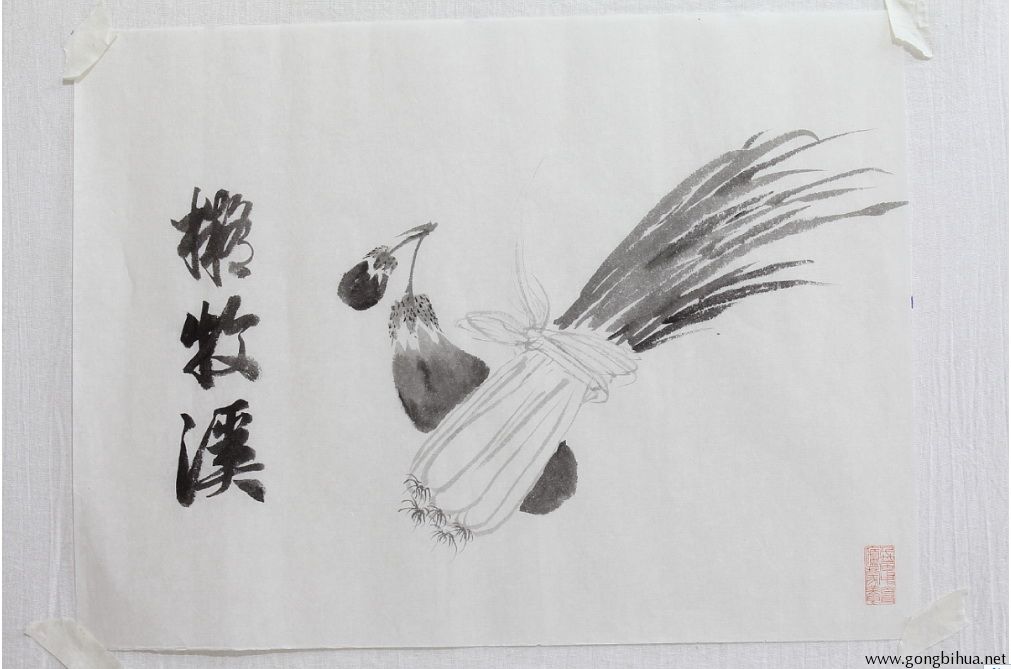 擬牧溪
www.gongbihua.net